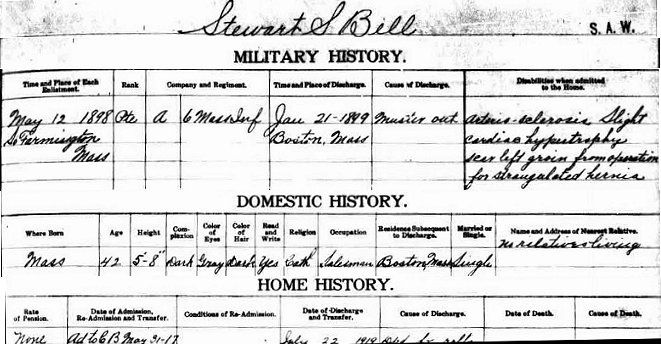 Stewart S Bill
S. A. W.
MILITARY HISTORY.
Time and Place of Each Enlistment. Rank Company and Regiment. Time and Place of Discharge. Cause of Discharge. Disabilities when admitted to the Home.
May 12 1898 Pte A 6 Mass Inf Jan 21-1899 Muster out Arterio-sclerosis Slight
So Farmington Boston, Mass cardiac hypertrophy
Mass scar left groin from operation
for strangulated hernia
DOMESTIC HISTORY.
Where Born Age Height Complexion Color of Eyes Color of Hair Read and Write Religion Occupation Residence Subsequent to Discharge. Married or Single. Name and Address of Nearest Relative.
no relatives living
Mass 42 5-8" Dark Gray Dark Yes Cath Salesman Boston Mass Single
HOME HISTORY.
Rate of Pension. Date of Admission, Re-Admission and Transfer. Conditions of Re-Admission. Date of Discharge and Transfer. Cause of Discharge. Date of Death. Cause of Death.
None Ad to C B May 31-17 July 22 1919 Dpd